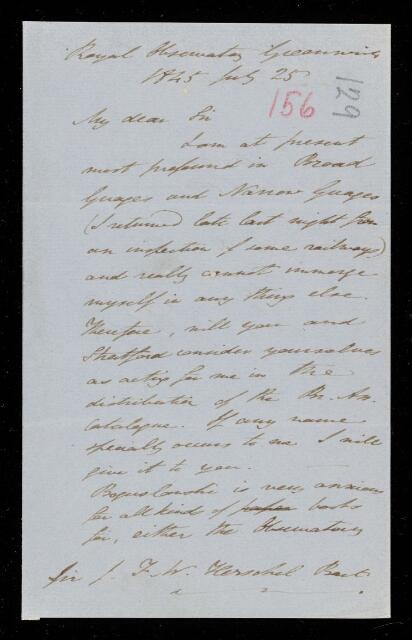 Royal Observatory Greenwich
1845 July 25
156
129
My dear Sir
I am at present
most profound in Broad
Guages and Narrow Guages
(I returned late last night from
an inspection of some railways)
and really cannot immerge
myself in any thing else.
Therefore, will you and
Stratford consider yourselves
as acting for me in the
distribution of the Br. As.
Catalogue. If any name
specially occurs to me I will
give it to you.
Boguslawski is very anxious
for all kind of books
for, either the Observatory
Sir J. F. W. Herschel Bart.